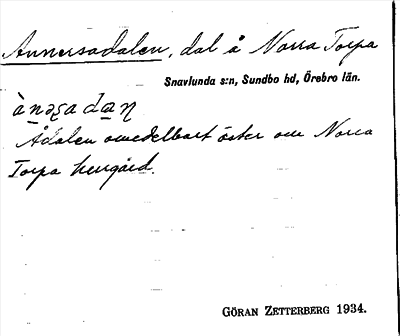 Annersadalen, dal å Norra Torpa
Snavlunda s:n, Sundbo hd, Örebro län.
Ådalen omedelbart öster om Norra
Torpa herrgård.
GÖRAN ZETTERBERG 1934.